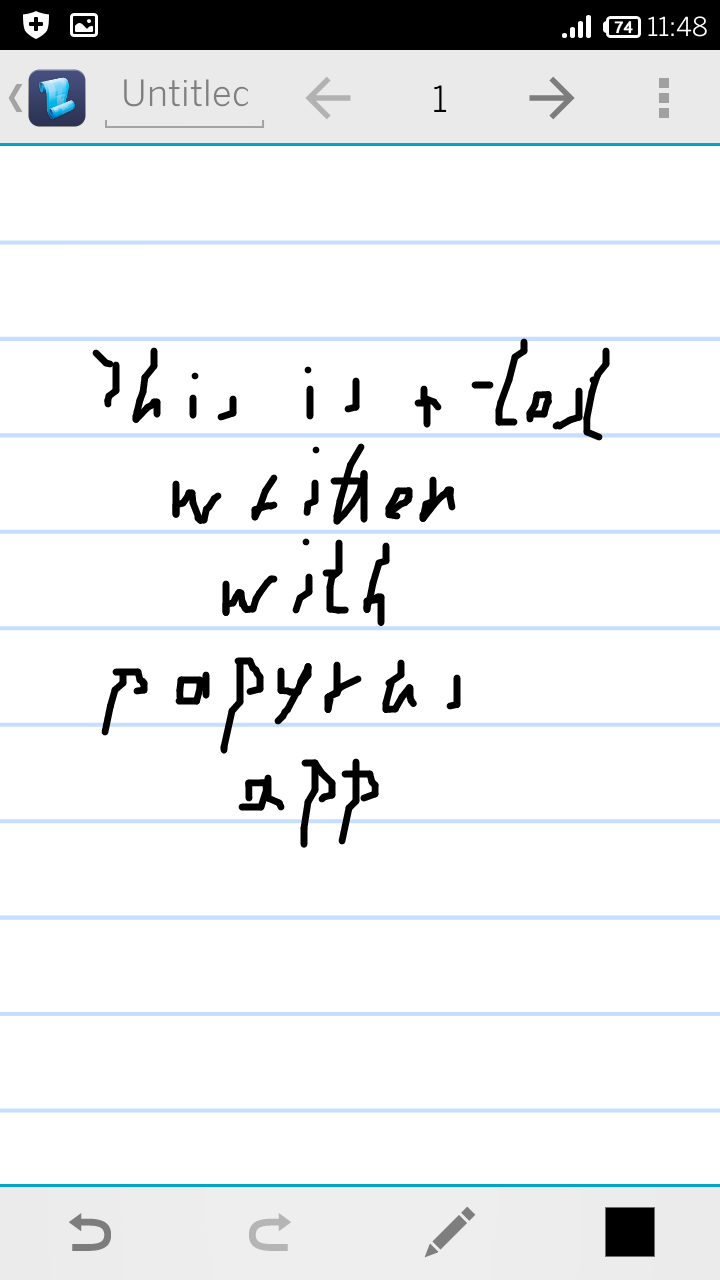 11:48
Untitlec
1
This is
written
with
papyrus
app